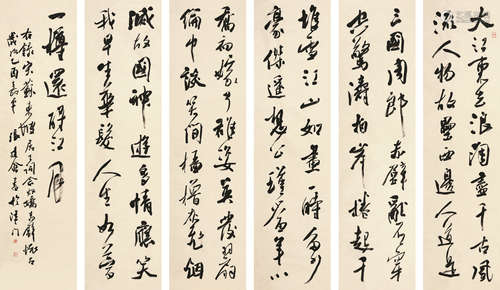 大江東去浪淘盡千古風
流人物故壘西邊人道是
三國周郎赤壁亂石穿
空驚濤拍岸捲起千
堆雪江山如畫一時多少
豪傑遙想公瑾當年小
喬初嫁了雄姿英發羽扇
綸巾談笑間檣櫓灰飛烟
滅故國神遊多情應笑
我早生華髮人生如夢
一樽還酹江月
右錄宋蘇東坡居士詞念奴嬌赤壁懷古
歲次乙酉 書於津門